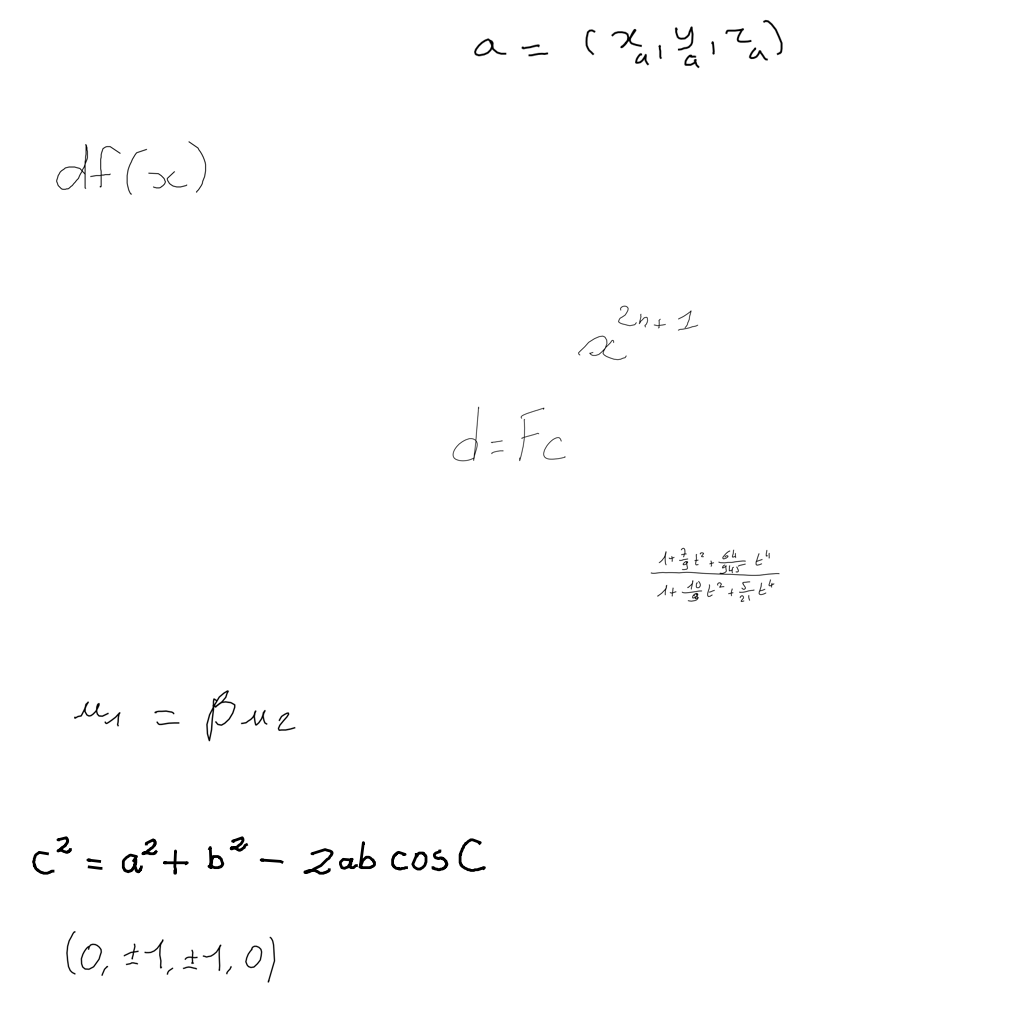 a = (x_a, y_a, z_a)
df(x)
x^{2n+1}
d = Fc
\frac{1+\frac{7}{9}t^2+\frac{64}{945}t^4}{1+\frac{10}{9}t^2+\frac{5}{21}t^4}
u_1 = β u_2
c^2 = a^2 + b^2 - 2ab cos C
(0, ±1, ±1, 0)